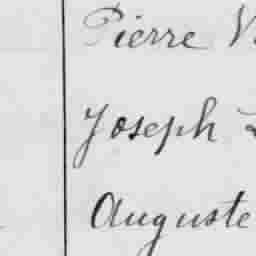 Pierre
Joseph
Auguste